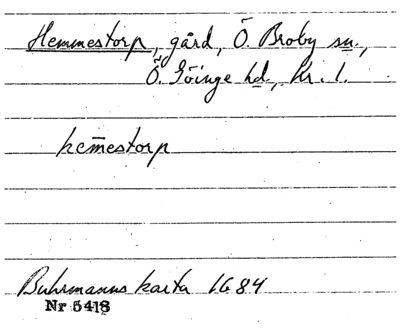 Hemmestorp, gård, Ö. Broby sn.,
Ö. Göinge hd, Kr. l.
hem̅estorp
Buhrmanns karta 1684
Nr 5418